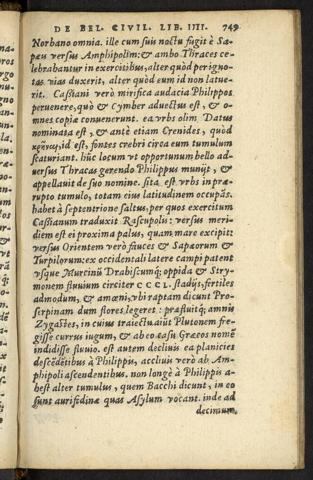 DE BEL. CIVIL. LIB. IIII. 749
Norbano omnia. ille cum suis noctu fugit è Sa-
pæu versus Amphipolim: & ambo Thraces ce-
lebrabantur in exercitibus, alter quòd per igno-
tas vias duxerit, alter quòd eum id non latue-
rit. Cassiani verò mirifica audacia Philippos
peruenere, quò & Cymber aduectus est, & o-
mnes copiæ conuenerunt. ea vrbs olim Datus
nominata est, & antè etiam Crenides, quòd
κρῆναι, id est, fontes crebri circa eum tumulum
scaturiant. hũc locum vt opportunum bello ad-
uersus Thracas gerendo Philippus muniit, &
appellauit de suo nomine. sita est vrbs in præ-
rupto tumulo, totam eius latitudinem occupãs.
habet à septentrione saltus, per quos exercitum
Cassianum traduxit Rascupolis: versus meri-
diem est ei proxima palus, quam mare excipit:
versus Orientem verò fauces & Sapæorum &
Turpilorum: ex occidentali latere campi patent
vsque Murcinũ Drabiscumq́; oppida & Stry-
monem fluuium circiter CCCL. stadijs, fertiles
admodum, & amœni, vbi raptam dicunt Pro-
serpinam dum flores legeret: præfluitq́; amnis
Zygastes, in cuius traiectu aiũt Plutonem fre-
gisse currus iugum, & ab eo casu Græcos nomẽ
indidisse fluuio. est autem decliuis ea planicies
descẽdẽtibus à Philippis, accliuis verò ab Am-
phipoli ascendentibus. non longè à Philippis a-
best alter tumulus, quem Bacchi dicunt, in eo
sunt aurifodinæ quas Asylum vocant. inde ad
decimum